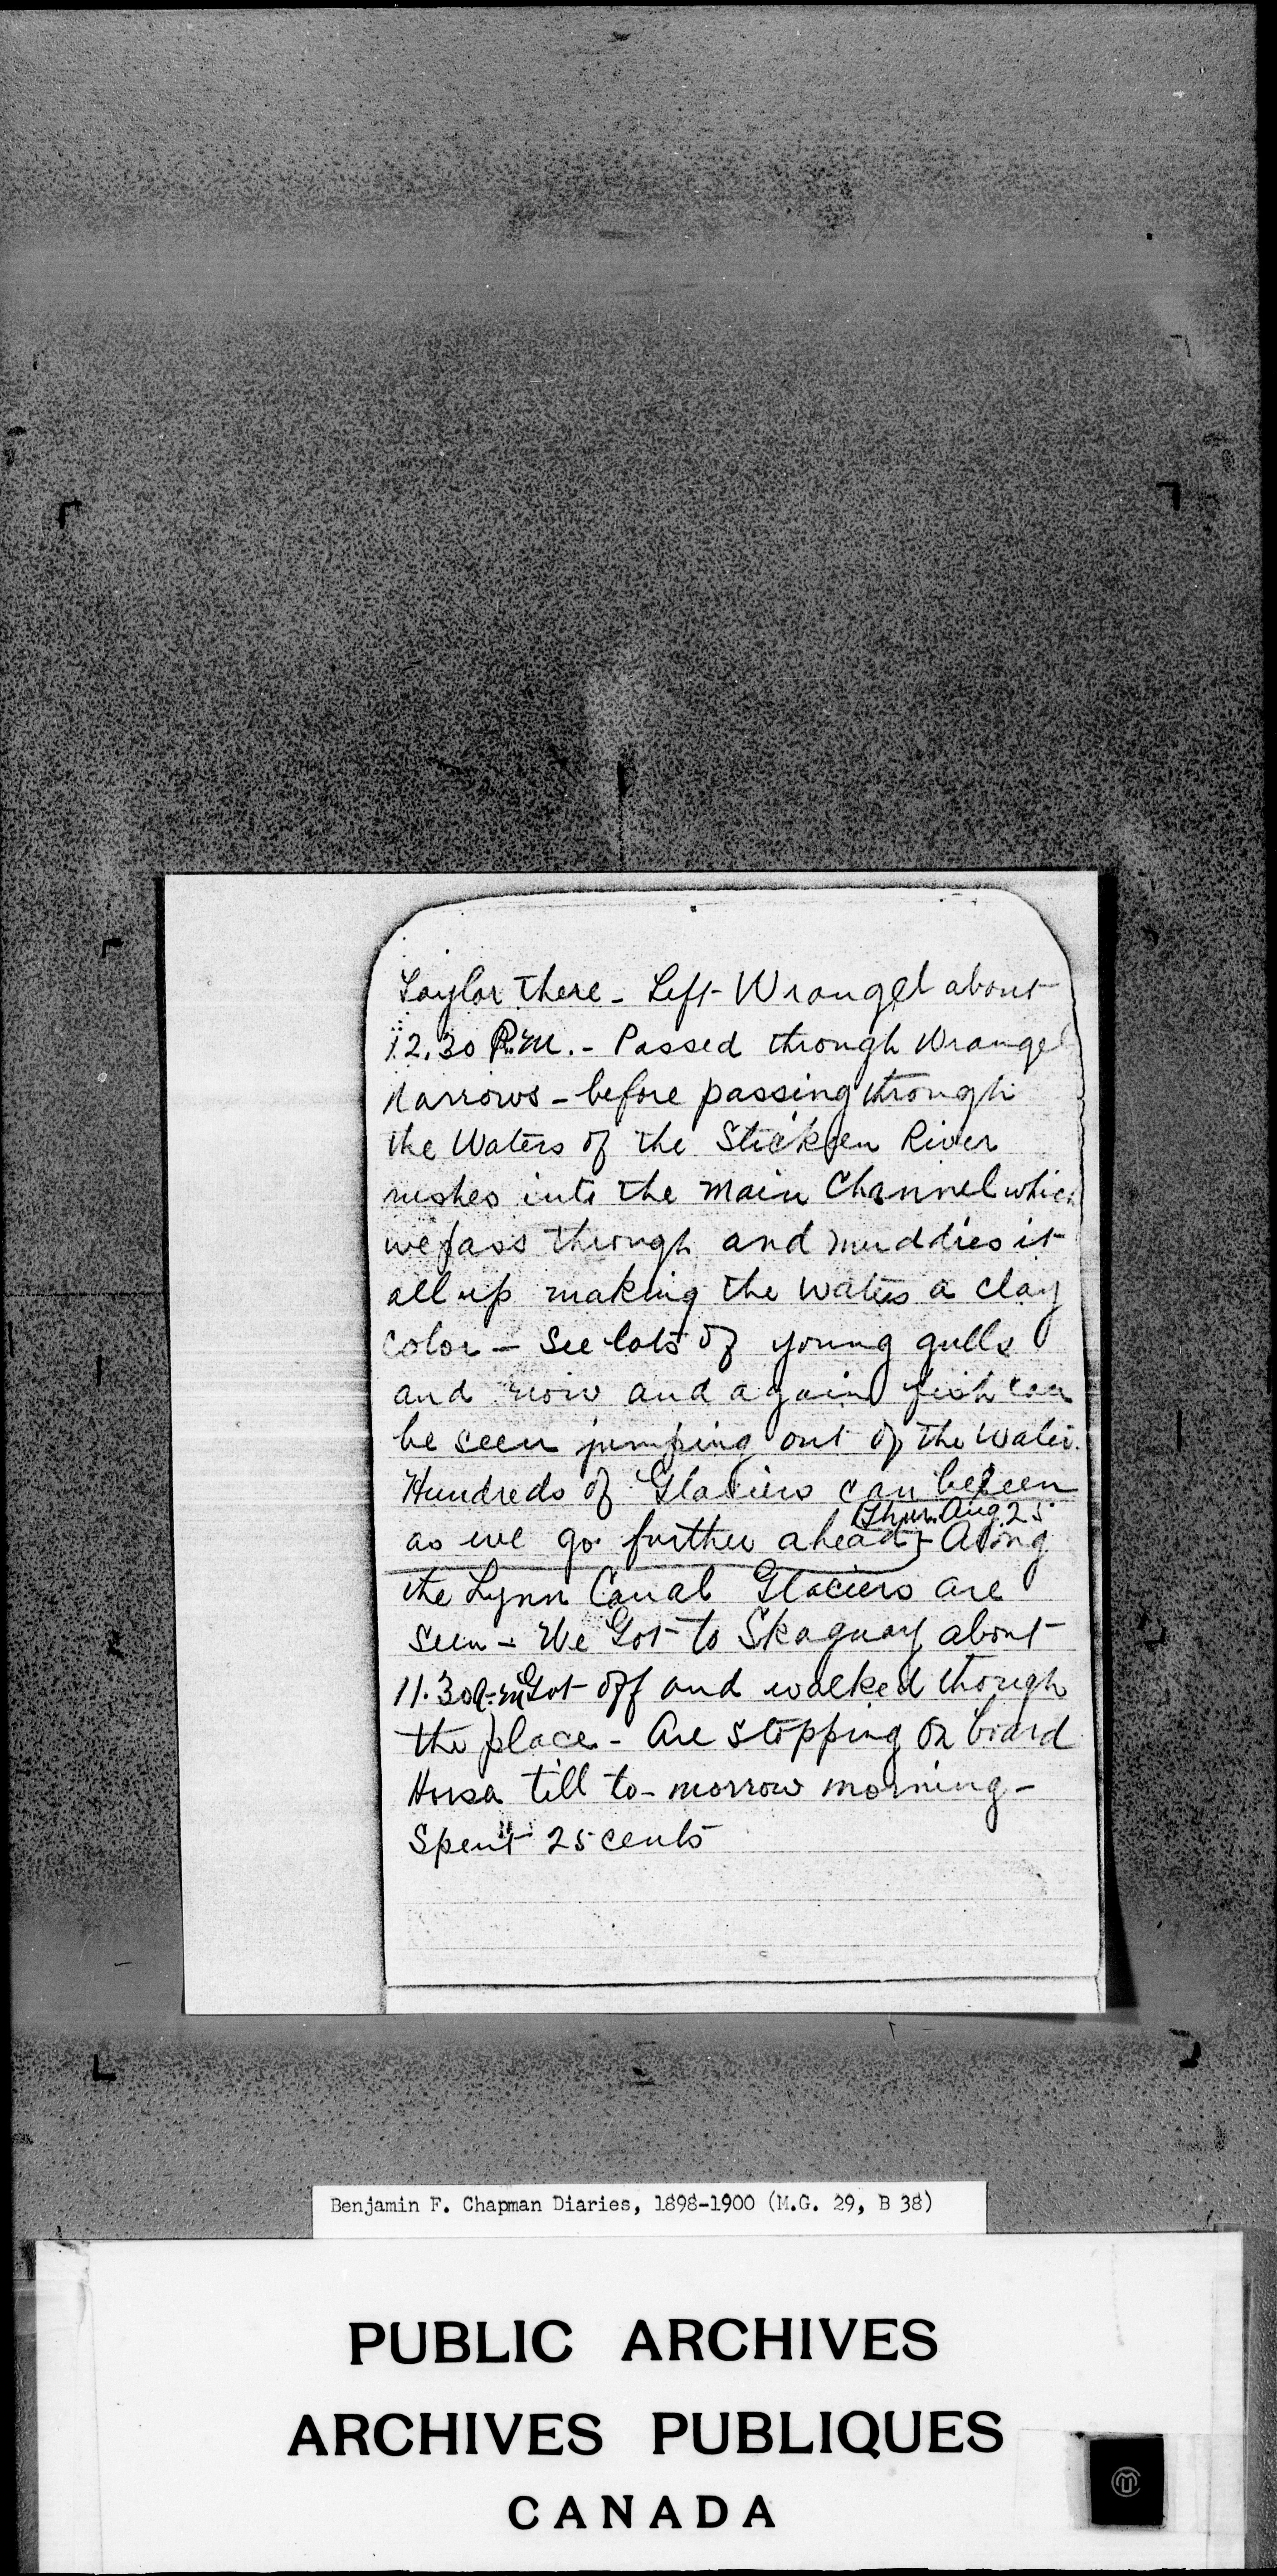 Taylor there - Left Wrangel about
12.30 P.M. - Passed through Wrangel
Narrows - before passing through
the Waters of the Stickeen River
rushes into the main Channel which
we pass through and muddies it
all up making the waters a clay
color - See lots of young gulls
and now and again fish can
be seen jumping out of the water.
Hundreds of Glaciers can be seen
(Thur. Aug. 25
as we go further ahead} - Along
the Lynn Canal Glaciers are
seen - We Got to Skaguay about
11.30 a.m Got off and walked though
the place - Are stopping on board
till to-morrow morning -
Spent 25 cents
Benjamin F. Chapman Diaries, 1898-1900 (M.G. 29, B 38)
PUBLIC ARCHIVES
ARCHIVES PUBLIQUES
CANADA